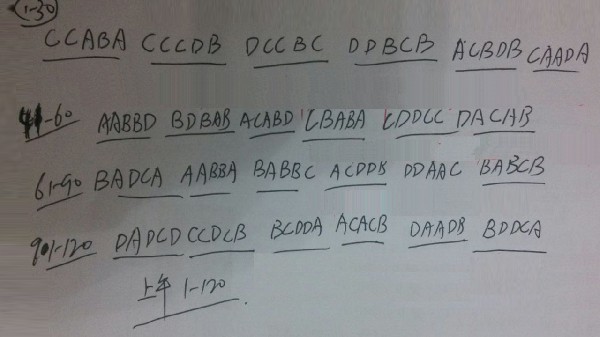 1-30
CCABA CCCDB DCCBC DDBCB ACBDB CAADA
41-60 AABBD BDBAB ACABD CBABA CDDCC DACAB
61-90 BADCA AABBA BABBC ACDDB DDAAC BABCB
91-120 DADCD CCDCB BCDDA ACACB DAADB BDDCA
上午 1-120.